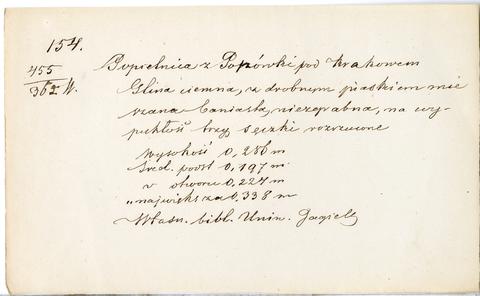 154.
455
362 W.
Popielnica z Popówki pod Krakowem
Glina ciemna, z drobnym piaskiem mie
szana baniasta, niezgrabna, na wy-
pukłość trzy sęczki rozrzucone
Wysokość 0,286 m
Śred. podst 0,197 m
w otworu 0,227 m
" największa 0,338 m
Włas. bibl. Uniw. Jagiell